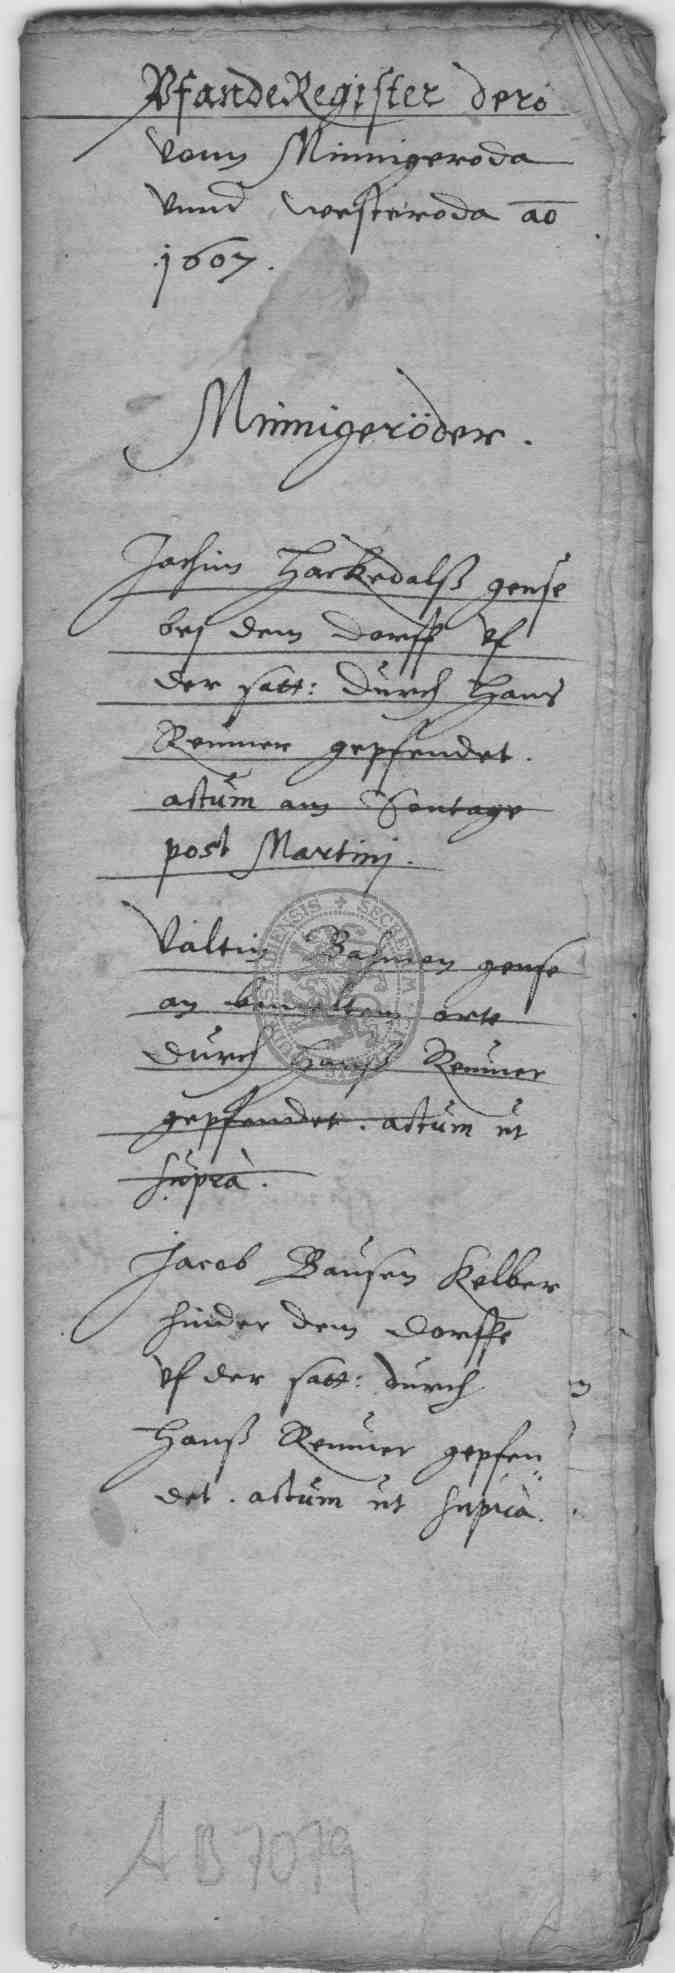 PfandeRegister dero
vonn Minnigeroda
vnnd westeroda ao
1607.
Minnigeröder.
Jochim Harkedalß gense
bej dem dorff vf
der satt: durch Hans
Renner gepfendet.
actum am Sontage
post Martinj.
Valtin gense
an bemeltem orte
durch Hanß Renner
gepfendet. actum ut
suprà.
Jacob Bausen Kelber
hinder dem dorffe
vf der satt: durch
Hanß Renner gepfen
det. actum ut suprà.
AB 7079